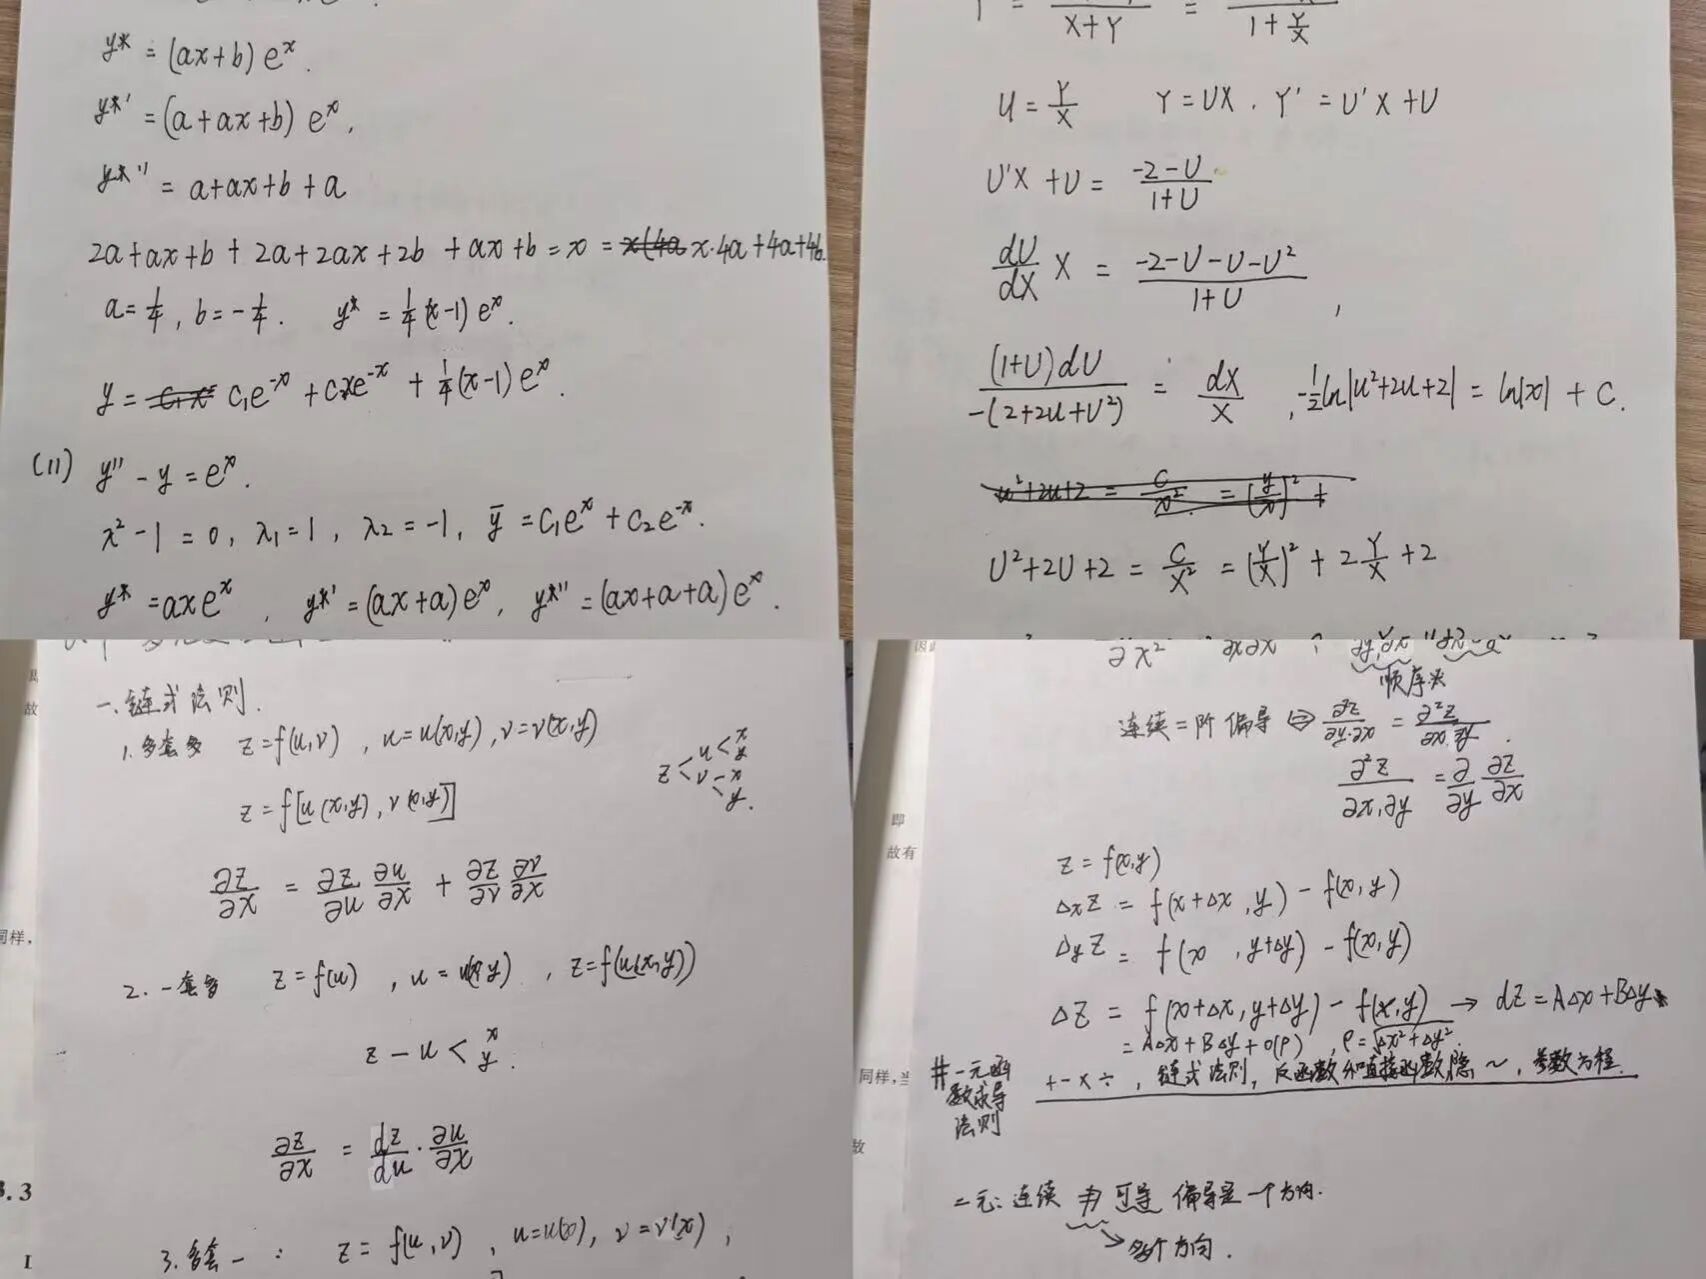 y* = (ax+b) eˣ.
y*' = (a+ax+b) eˣ,
y*'' = a+ax+b+a
2a+ax+b + 2a+2ax+2b + ax+b = x = x·4a+4a+4b
a=1/4, b=-1/4. y* = 1/4(x-1)eˣ.
y = c₁e⁻ˣ + c₂xe⁻ˣ + 1/4(x-1)eˣ.
(11) y'' - y = eˣ.
λ²-1 = 0, λ₁=1, λ₂=-1, ȳ = C₁eˣ + C₂e⁻ˣ.
y* = axeˣ, y*' = (ax+a)eˣ, y*'' = (ax+a+a)eˣ.
X+Y = 1+Y/X
u = Y/X Y=UX. Y' = U'X+U
U'X+U = (-2-U)/(1+U)
dU/dX X = (-2-U-U-U²)/(1+U),
(1+U)dU/-(2+2U+U²) = dX/X, -1/2 ln|u²+2u+2| = ln|x| + C.
u²+2u+2 = C/x² = (y/x)² +
U²+2U+2 = C/X² = (Y/X)² + 2 Y/X + 2
一、链式法则.
1. 多套多 z=f(u,v), u=u(x,y), v=v(x,y)
z < u < x y
v - x
y.
z = f[u(x,y), v(x,y)]
∂z/∂x = ∂z/∂u ∂u/∂x + ∂z/∂v ∂v/∂x
2. 一套多 z=f(u), u=u(x,y), z=f(u(x,y))
z - u < x y.
∂z/∂x = dz/du · ∂u/∂x
3. 多套一: z=f(u,v), u=u(x), v=v(x),
同样,
3.3
故
顺序
连续二阶偏导 ⇨ ∂²z/∂y·∂x = ∂²z/∂x·∂y.
∂²z/∂x·∂y = ∂/∂y ∂z/∂x
z = f(x,y)
ΔxZ = f(x+Δx, y) - f(x,y)
ΔyZ = f(x, y+Δy) - f(x,y)
ΔZ = f(x+Δx, y+Δy) - f(x,y) → dz = AΔx+BΔy
= AΔx+BΔy+o(ρ), ρ=√Δx²+Δy².
# 一元函数求导法则
+ - × ÷, 链式法则, 反函数和直接函数, 隐~, 参数方程.
二元: 连续 可导 偏导是一个方向.
→ 多个方向.
即
故有
同样,当
数